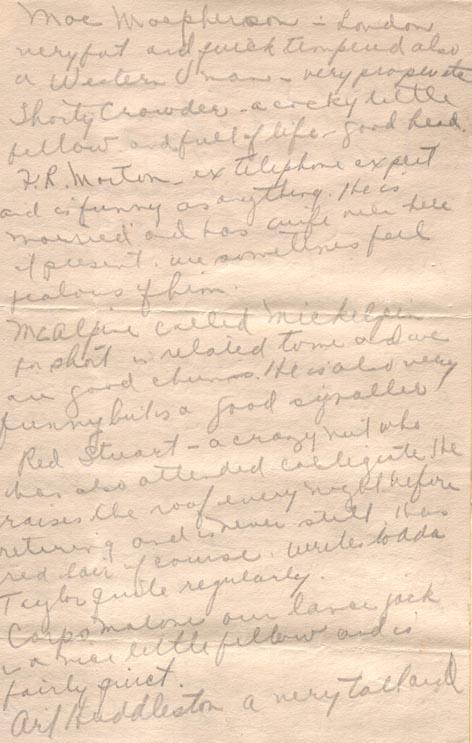 Mac Macpherson - London
very fat and quick tempered also
a Western U man - very
Shorty Crowder - a cocky little
fellow and full of life - good head.
F.R. Morton - ex telephone expert
and is funny as anything. He is
married and has wife over here
at present. we sometimes feel
jealous of him.
McAlpine called Mickelpin
for short is related to me and we
are good chums. He is also very
funny but is a good signaller
Red Stuart - a crazy nut who
has also attended collegiate. He
raises the roof every night before
retiring and is never still, has
red hair of course. writes to Ada
Taylor quite regularly.
Corp. Malone our lance jack
is a nice little fellow and is
fairly quiet.
Art Huddleston a very tall and